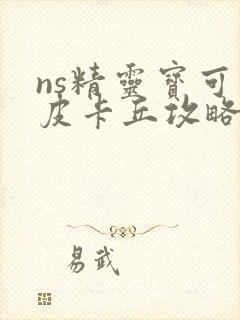 ns精靈寶可
皮卡丘攻略
易武